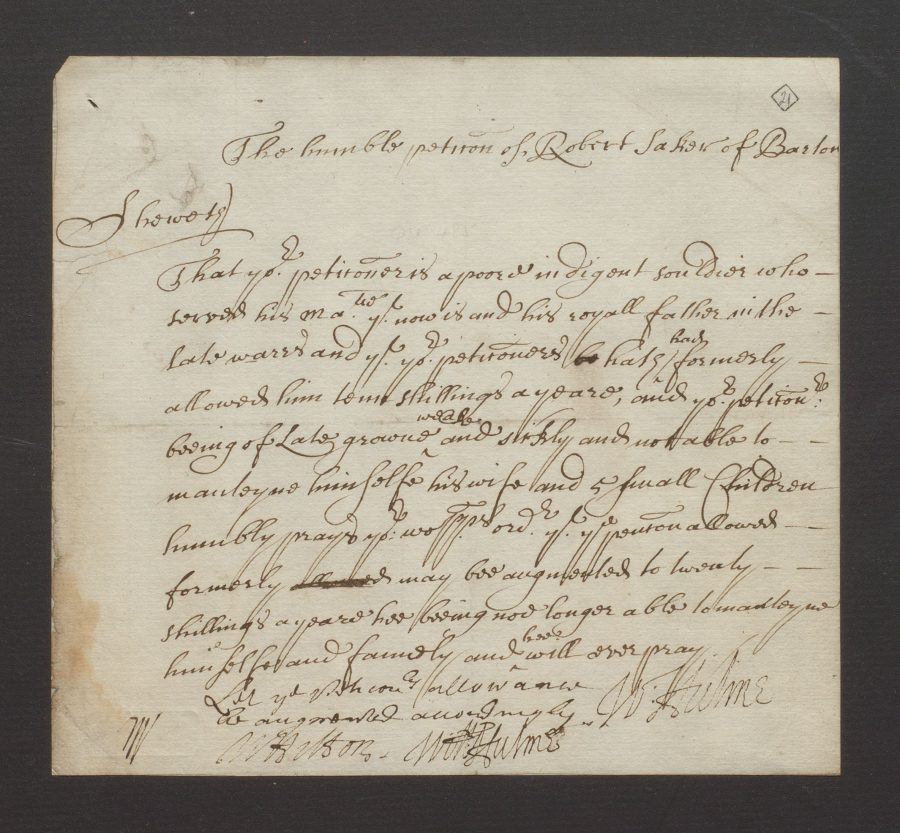 21
The humble peticon of Robert Saker of Barton
Sheweth
That yor. peticoner is a poore indigent souldier who –
served his Ma.tie yt. now is and his royall father in the –
late warrs and yt. yor. peticoners hath had formerly –
allowed him tenn shillings a yeare, and yor. peticonr.
beeing of late growne weake and sickly and not able to – –
manteyne himselfe his wife and 5 small Children
humbly prays yor. worspps ordr. yt. ye pencon allowed –
formerly may bee augmented to twenty – –
shillings a yeare hee being noe longer able to manteyne
himselfe and family and hee will ever pray
Let ye peticonrs allowance
be augmented accordingly
W. Hulme
Wm Hulme